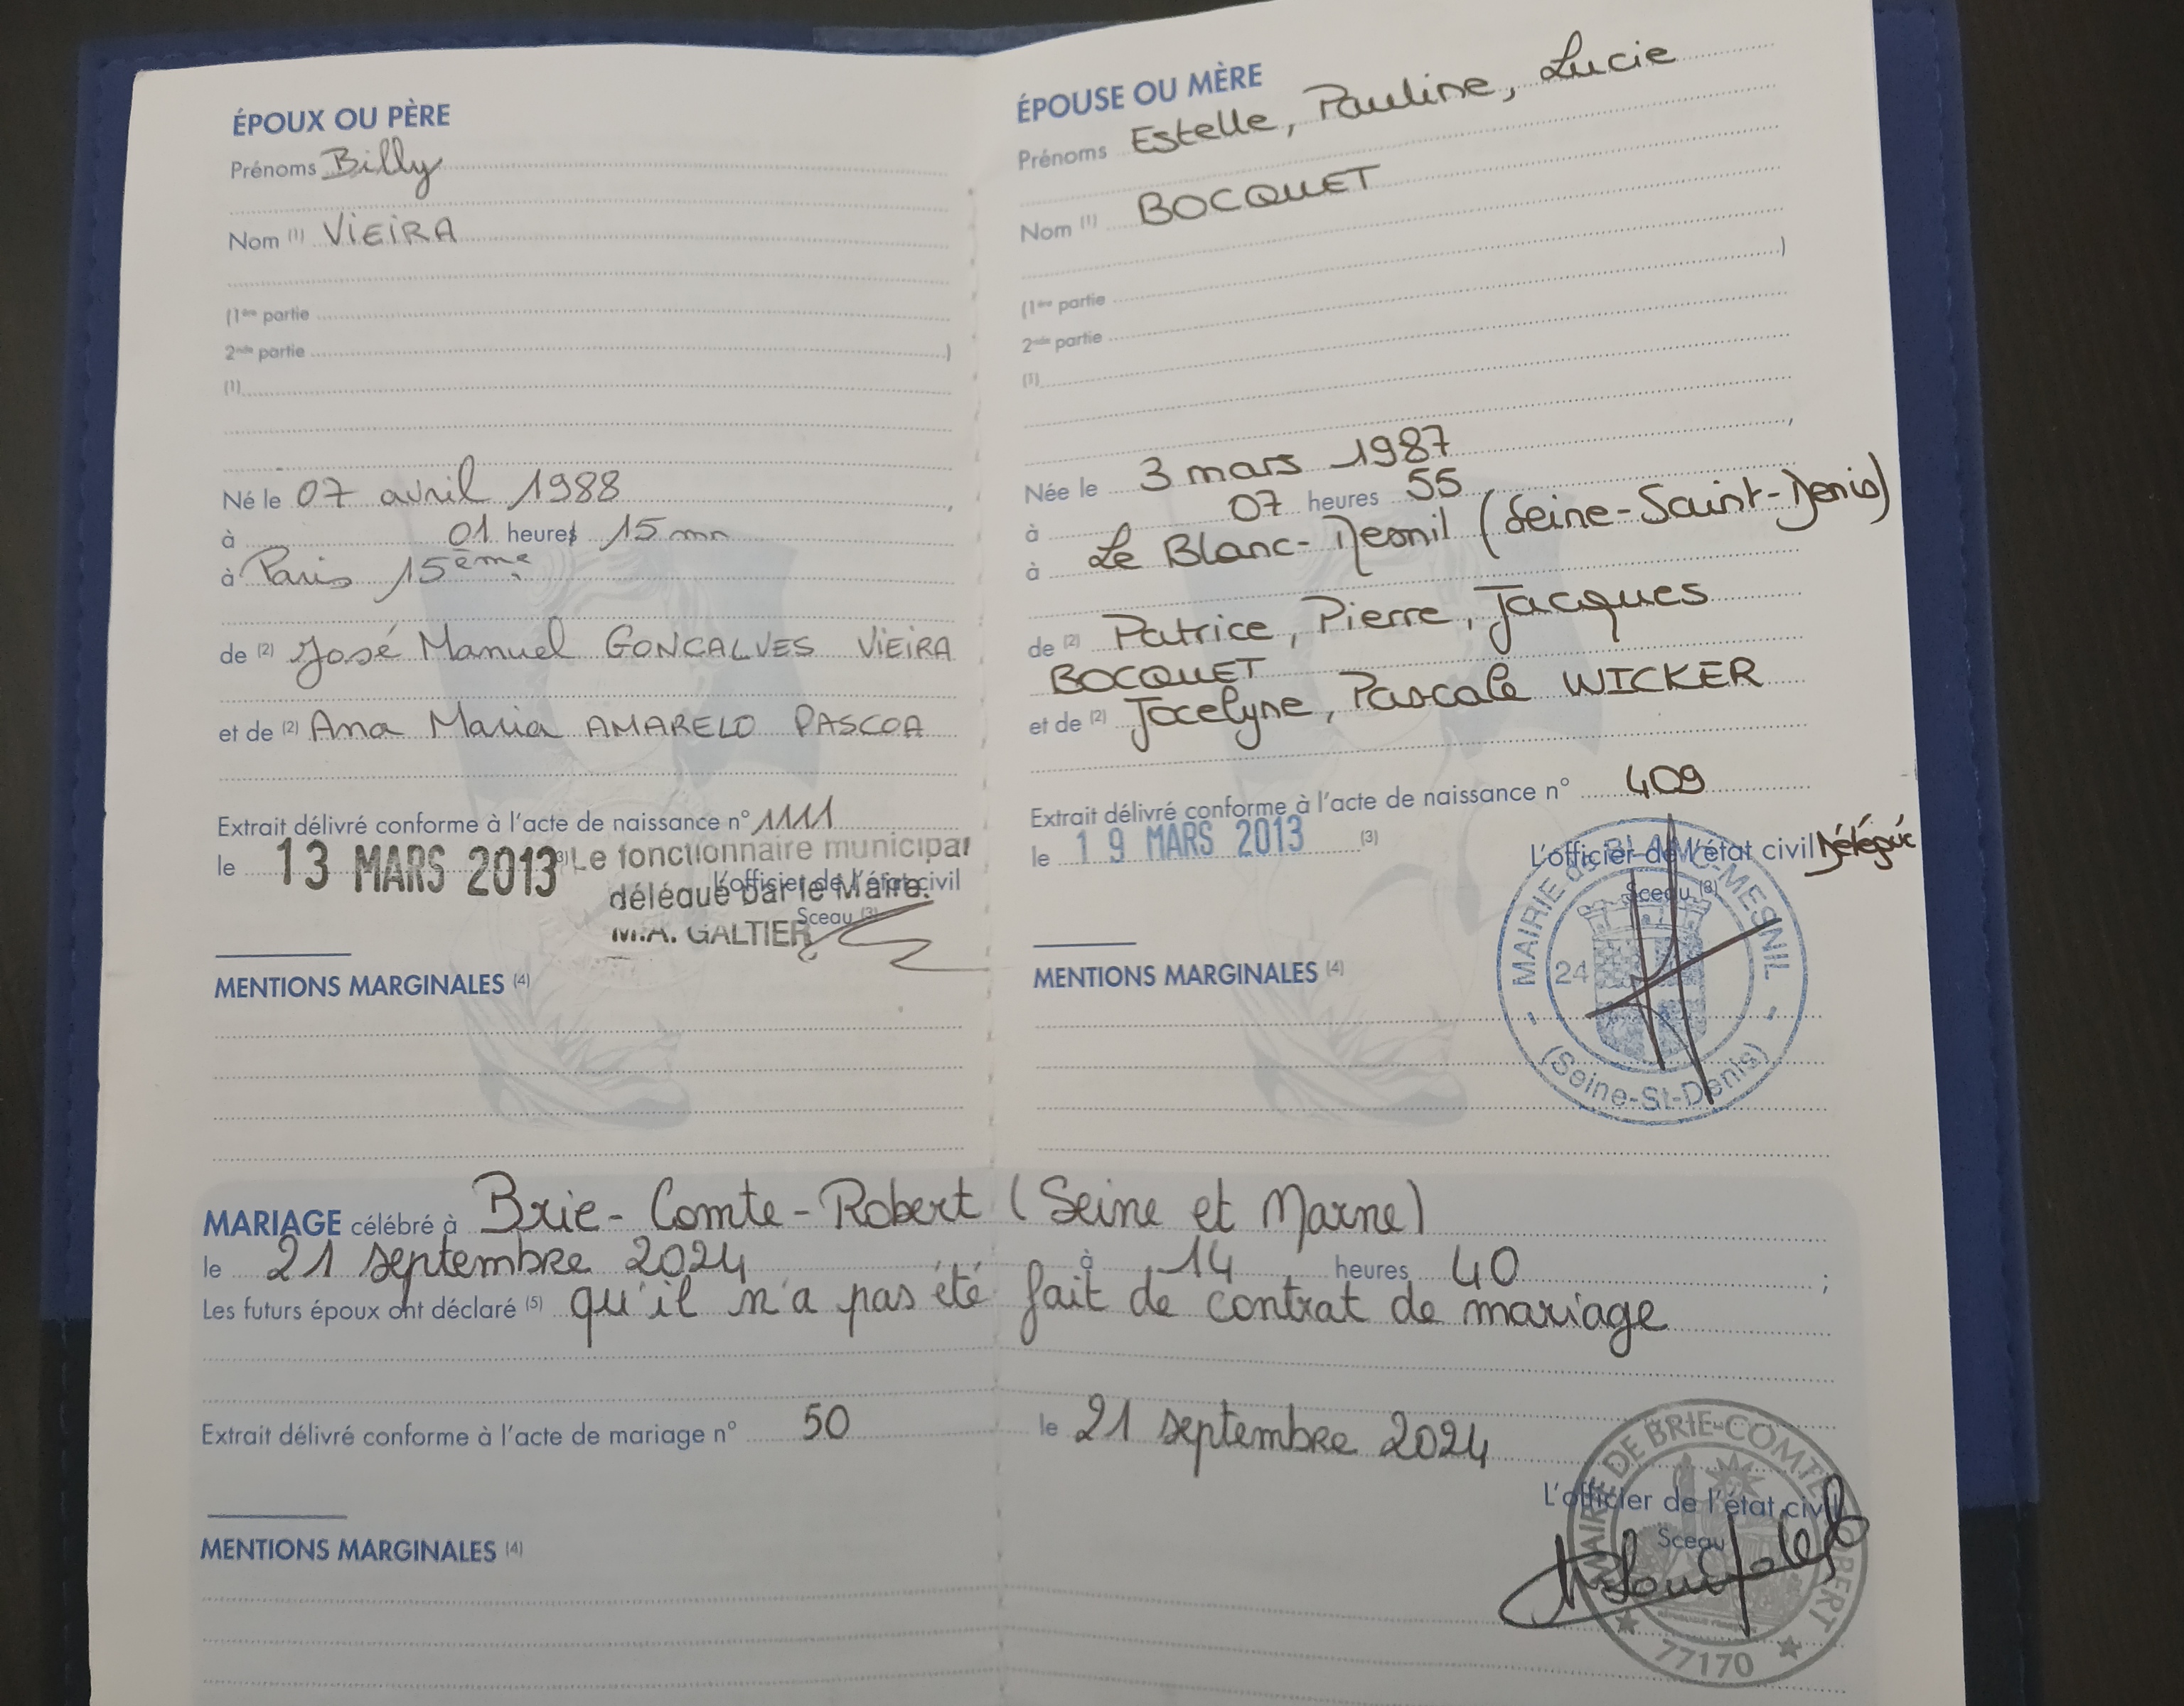 ÉPOUX OU PÈRE
Prénoms Billy
Nom (1) VIEIRA
(1ère partie
2nde partie )
(1)
Né le 07 avril 1988 ,
à 01 heures 15 mn
à Paris 15ème
de (2) José Manuel GONCALVES VIEIRA
et de (2) Ana Maria AMARELO PASCOA
Extrait délivré conforme à l'acte de naissance n° 1111
le 13 MARS 2013 (3) Le fonctionnaire municipal
L'officier de l'état civil
délégué par le Maire.
Sceau (3)
M.A. GALTIER
MENTIONS MARGINALES (4)
ÉPOUSE OU MÈRE
Prénoms Estelle, Pauline, Lucie
Nom (1) BOCQUET
(1ère partie )
2nde partie
(1)
Née le 3 mars 1987 ,
à 07 heures 55
à Le Blanc-Mesnil (Seine-Saint-Denis)
de (2) Patrice, Pierre, Jacques
BOCQUET
et de (2) Jocelyne, Pascale WICKER
Extrait délivré conforme à l'acte de naissance n° 409
le 19 MARS 2013 (3)
L'officier de l'état civil Délégué
Sceau (3)
MAIRIE de BLANC-MESNIL
24
(Seine-St-Denis)
MENTIONS MARGINALES (4)
MARIAGE célébré à Brie-Comte-Robert (Seine et Marne)
le 21 septembre 2024 à 14 heures 40 ;
Les futurs époux ont déclaré (5) qu'il n'a pas été fait de contrat de mariage
Extrait délivré conforme à l'acte de mariage n° 50 le 21 septembre 2024
L'officier de l'état civil
Sceau
MAIRIE DE BRIE-COMTE-ROBERT
77170
MENTIONS MARGINALES (4)